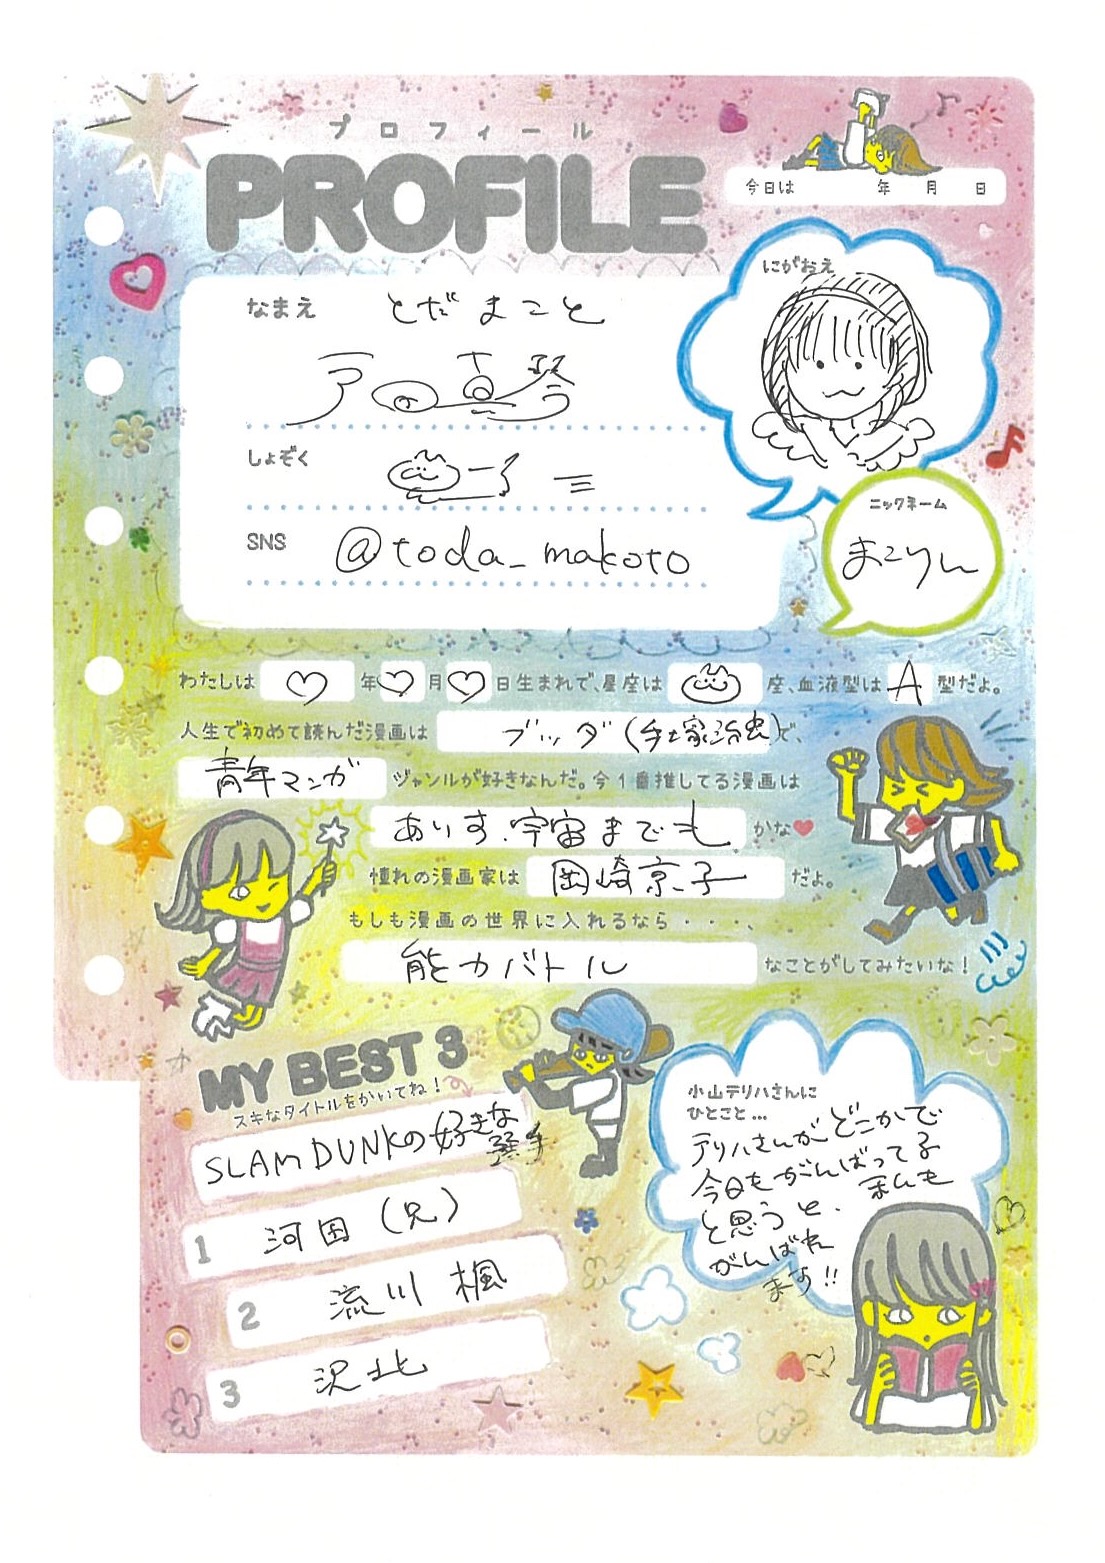 プロフィール
PROFILE
今日は 年 月 日
にがおえ
なまえ とだ まこと
戸田真琴
しょぞく
SNS @toda_makoto
ニックネーム
まこりん
わたしは 年 月 日生まれで、星座は 座、血液型は A 型だよ。
人生で初めて読んだ漫画は ブッダ(手塚治虫)で、
青年マンガ ジャンルが好きなんだ。今1番推してる漫画は
あいす、宇宙までも かな
憧れの漫画家は 岡崎京子 だよ。
もしも漫画の世界に入れるなら・・・・、
能力バトル なことがしてみたいな!
MY BEST 3
スキなタイトルをかいてね!
SLAM DUNKの好きな選手
1 河田(兄)
2 流川楓
3 沢北
小山テリハさんに
ひとこと…
テリハさんがどこかで
今日もがんばってる
と思うと、
がんばれ
ます!!